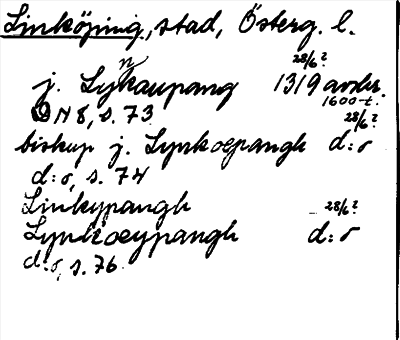 Linköping, stad, Österg. l.
28/6?
j. Lynkaupang 1319 avskr.
1600-t.
DN 8, s. 73 28/6?
biskup j. Lynkoepangh d:o
d:o, s. 74
Linkypangh 28/6?
Lynkoeypangh d:o
d:o, s. 76